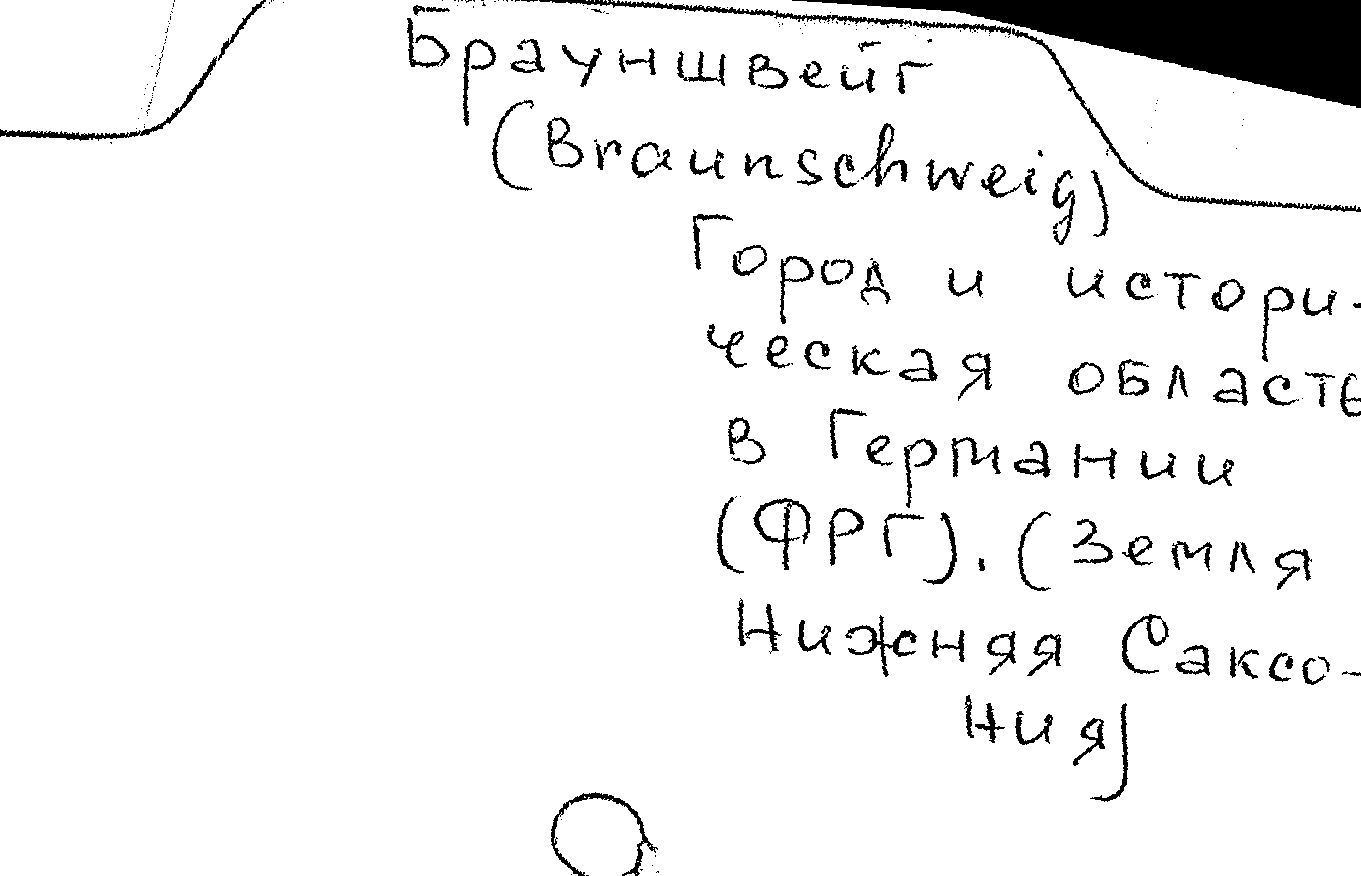 Брауншвейг
(Braunschweig)
Город и истори-
ческая область
в Германии
(ФРГ). (Земля
Нижняя Саксо-
ния)